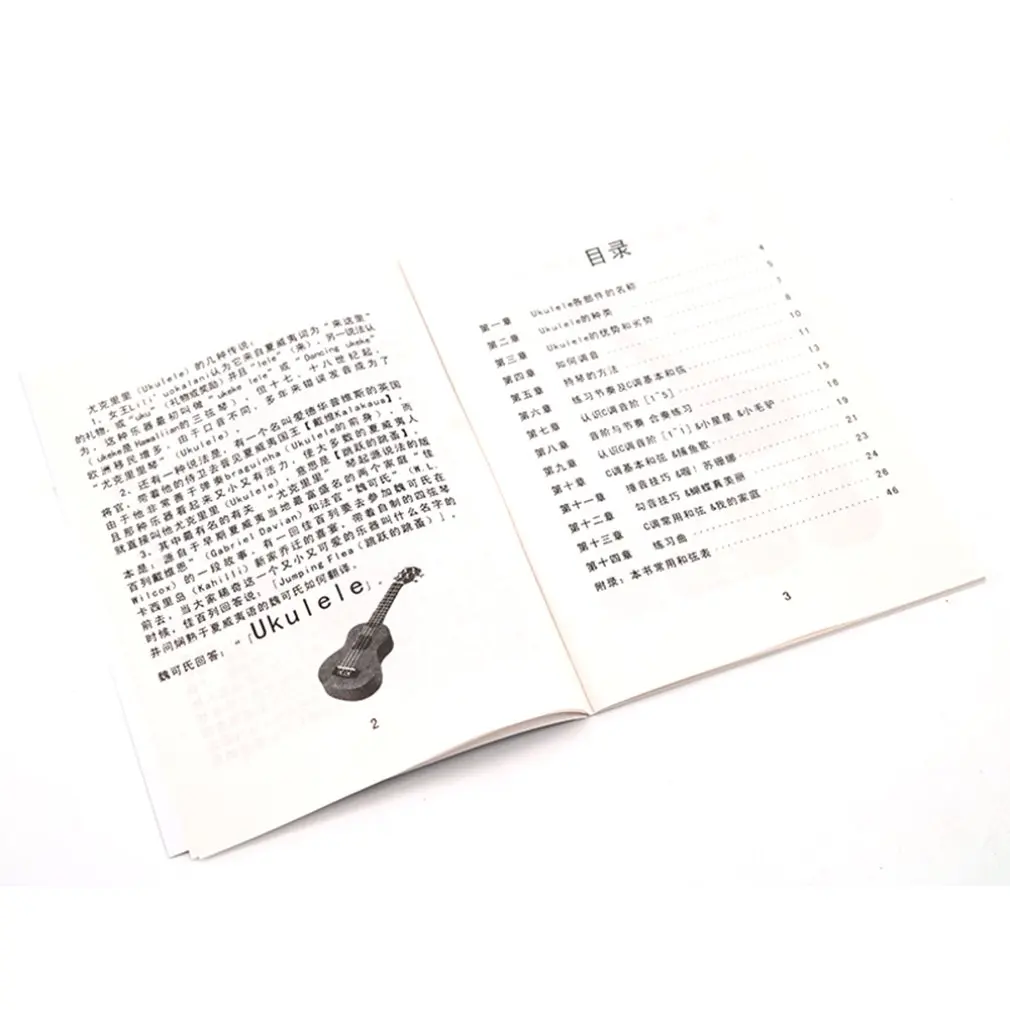 尤克里里（Ukulele）的几种传说：
1、女王Lili' uokalani认为它来自夏威夷词为“来这里”
的礼物，或“uku”（礼物或奖励）并且“lele”（来），另一说法认
为，这种乐器最初叫做“ukeke lele”或“Dancing ukeke”
（ukeke是Hawaiian的三弦琴），但十七、十八世纪起，
欧洲移民增多，由于口音不同，多年来错误发音成为了
“尤克里里琴”（Ukulele）.
2、还有一种说法是，有一个名叫爱德华普维斯的英国
将官，带着他的侍卫去晋见夏威夷国王【戴维Kalakaua】
由于他非常善于弹奏braguinha（Ukulele的前身），而
且那种乐器看起来又小又有活力，使大多数的夏威夷人
就直接叫他尤克里里（Ukulele），意思是【跳跃的跳蚤】，
3、其中最有名的有关“尤克里里”琴起源说法的版
本是：源自于早期夏威夷当地最富盛名的两个家庭“佳
百列戴维恩”（Gabriel Davian）和法官“魏可氏”（W.L.
Wilcox）的一段故事，有一回佳百列要去参加魏可氏在
卡西里岛（Kahilli）新家乔迁的喜宴，带着自制的四弦琴
前去，当大家稀奇这一个又小又可爱的乐器叫什么名字的
时候，佳百列回答说：「Jumping Flea（跳跃的跳蚤）」，
并问娴熟于夏威夷语的魏可氏如何翻译.
魏可氏回答：“「Ukulele」.
2
目录
第一章 Ukulele各部件的名称 4
第二章 Ukulele的种类 5
第三章 Ukulele的优势和劣势 7
第四章 如何调音 8
第五章 持琴的方法 10
第六章 练习节奏及C调基本和弦 11
第七章 认识C调音阶 [1~5] 13
第八章 音阶与节奏 合奏练习 15
第九章 认识C调音阶 [1~1] &小星星 &小毛驴 16
第十章 C调基本和弦 &捕鱼歌 19
第十一章 捶音技巧 &啦！苏珊娜 21
第十二章 勾音技巧 &蝴蝶真美丽 23
第十三章 C调常用和弦 &我的家庭 24
第十四章 练习曲 26
附录：本书常用和弦表 46
3